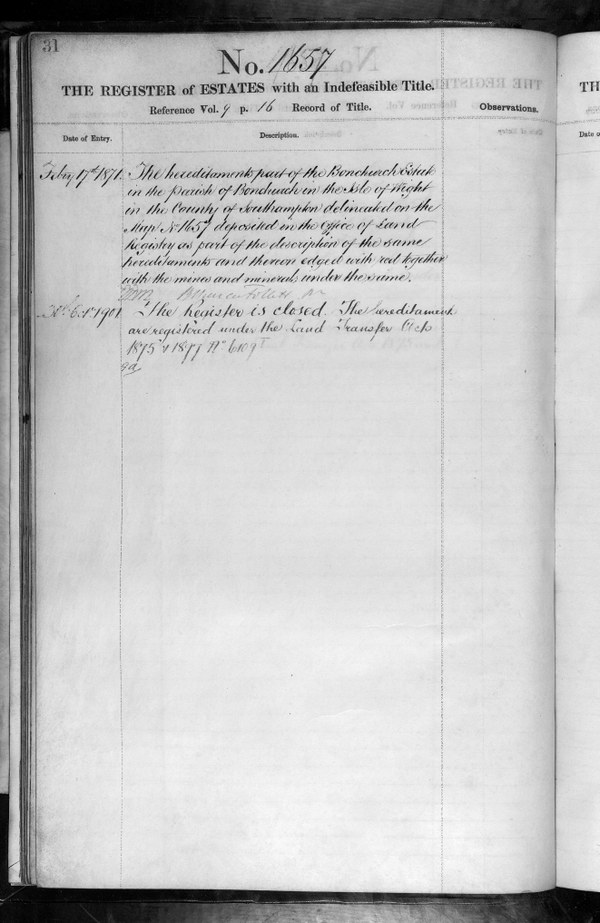 31
No. 1657
THE REGISTER of ESTATES with an Indefeasible Title.
Reference Vol. 9 p. 16 Record of Title.
Observations.
Date of Entry.
Description.
Feby 17th 1871.
The hereditaments part of the Bonchurch Estate
in the Parish of Bonchurch in the Isle of Wight
in the County of Southampton delineated on the
Map No 1657 deposited in the Office of Land
Registry as part of the description of the same
hereditaments and thereon edged with red together
with the mines and minerals under the same.
Follett
1901
The Register is closed. The hereditaments
are registered under the Land Transfer Acts
1875 & 1877 No 6109
TH
Date o